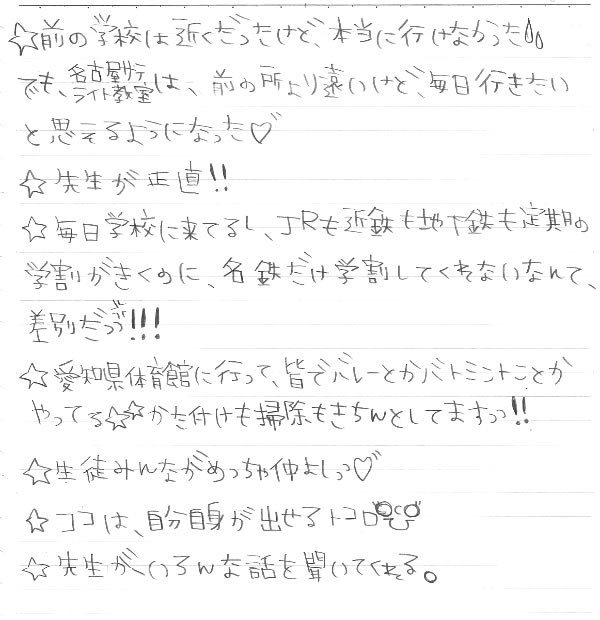 ☆前の学校は近くだったけど、本当に行けなかった
でも、名古屋みらいライト教室は、前の所より遠いけど、毎日行きたい
と思えるようになった♡
☆先生が正直!!
☆毎日学校に来てるし、JRも近鉄も地下鉄も定期の
学割がきくのに、名鉄だけ学割してくれないなんて、
差別だっづ!!!
☆愛知県体育館に行って、皆でバレーとかバトミントことか
やってる☆☆かた付けも掃除もきちんとしてますっっ!!
☆生徒みんながめっちゃ仲よしっ♡
☆ココは、自分自身が出せるトコロ
☆先生が、いろんな話を聞いてくれる。